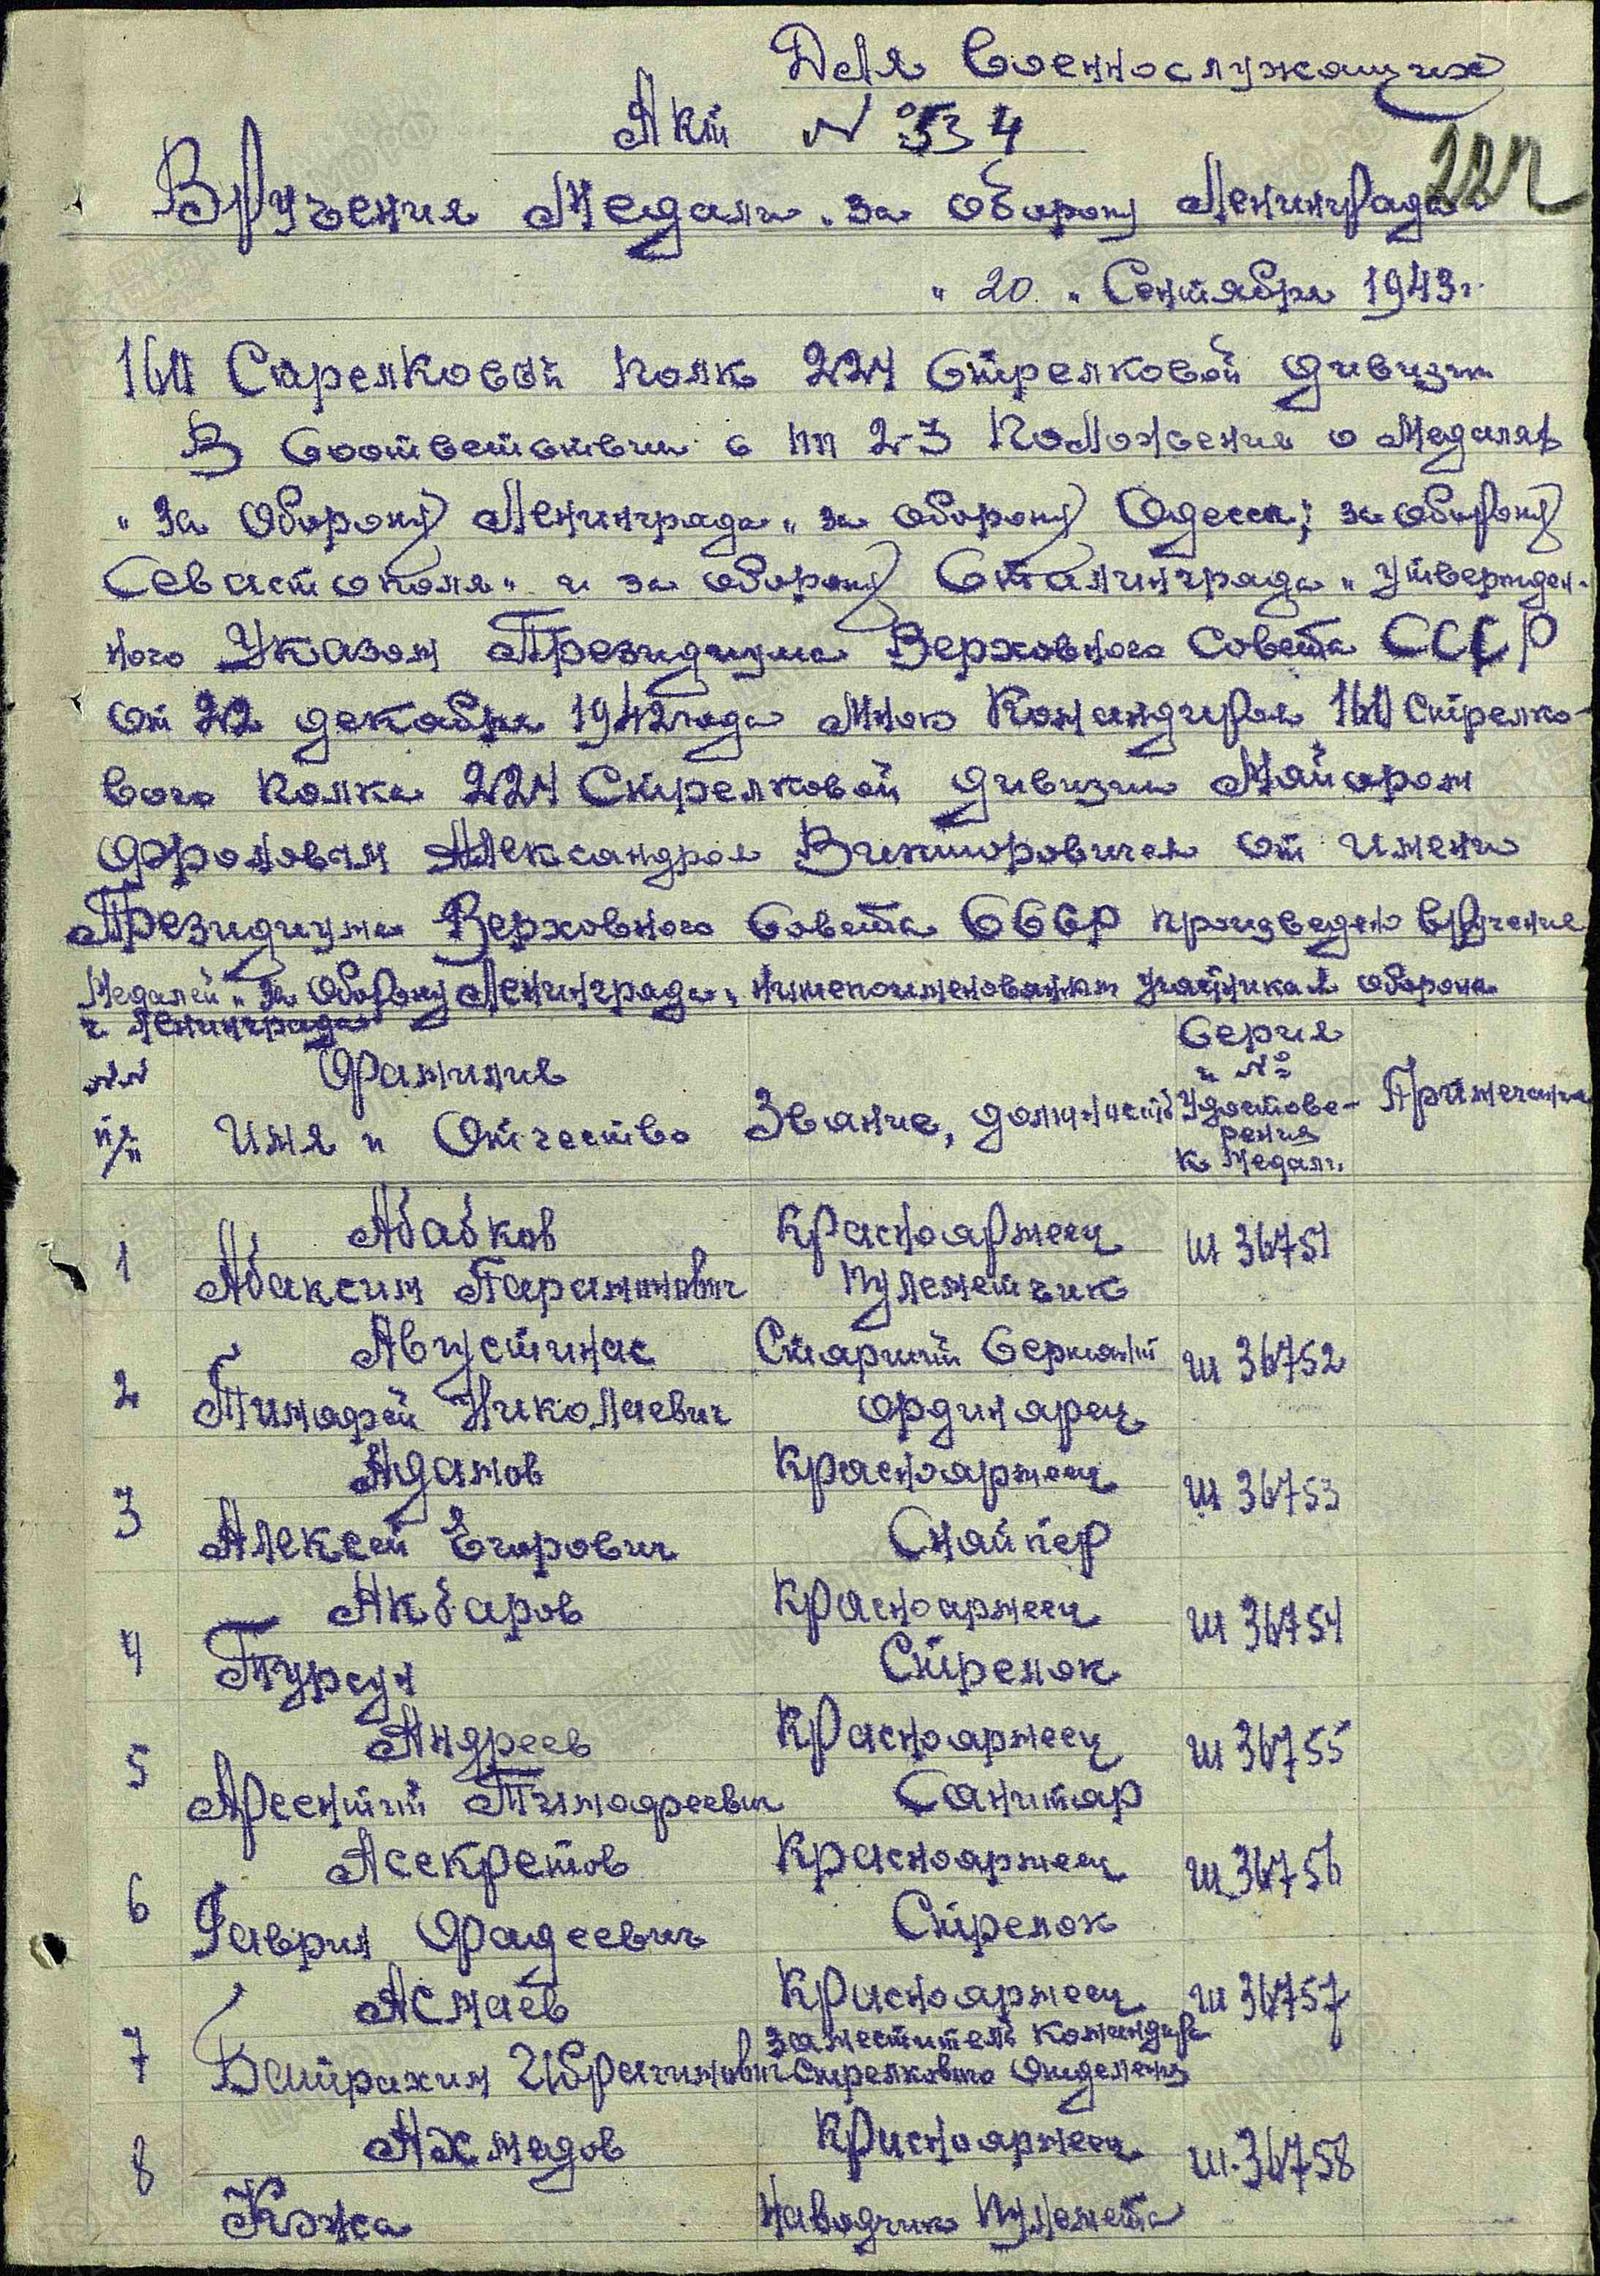 Для Военнослужащих
Акт № 534
Вручения Медали "за оборону Ленинграда"
"20" Сентября 1943г.
160 Стрелковой полк 224 Стрелковой дивизии
В Соответствии с пп 2-3 Положения о Медалях
"За Оборону Ленинграда" за оборону Одессы; за оборону
Севастополя" и за оборону Сталинграда" утвержден-
ного Указом Президиума Верховного Совета СССР
от 22 декабря 1942 года мною Командиром 160 Стрелко-
вого полка 224 Стрелковой дивизии Майором
Фроловым Александром Викторовичем от имени
Президиума Верховного Совета СССР произведено вручение
Медалей "За Оборону Ленинграда" нижепоименованным участникам обороны
г Ленинграда
№№ п/п
Фамилия
Имя и Отчество
Звание, должность
Серия и № Удостове-
рения
к медали.
Примечание
1 Абабков Красноармеец Ш 36751
Абаксим Парамонович пулеметчик
2 Августинас Старший Сержант Ш 36752
Тимофей Николаевич ординарец
3 Адамов Красноармеец Ш 36753
Алексей Егорович Снайпер
4 Акбаров Красноармеец Ш 36754
Турсун Стрелок
5 Андреев Красноармеец Ш 36755
Арсентий Тимофеевич Санитар
6 Асекретов Красноармеец Ш 36756
Гаврил Фадеевич Стрелок
7 Асмаев Красноармеец Ш 36757
заместитель командира
Байрахим Ибрагимович Стрелкового Отделения
8 Ахмедов Красноармеец Ш. 36758
Кожа Наводчик пулемета